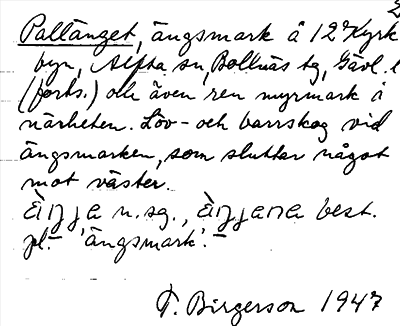 2
Pallänget, ängsmark å 12 Kyrk
byn, Alfta sn, Bollnäs tg, Gävl. l
(forts.) och även ren myrmark i
närheten. Löv- och barrskog vid
ängsmarken, som sluttar något
mot väster.
n.sg., best.
pl. - 'ängsmark'. -
T. Birgerson 1947